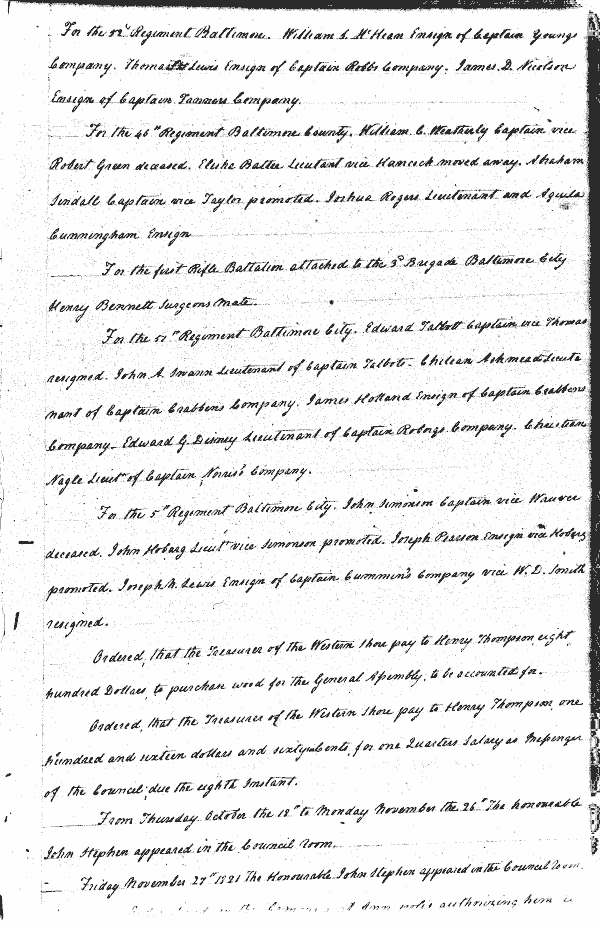 For the 52d Regiment Baltimore. William S. McHean Ensign of Captain Youngs
Company. Thomas Lewis Ensign of Captain Robbs Company. James D. Nicolson
Ensign of Captain Tanners Company.
For the 46th Regiment Baltimore County. William C. Weatherly Captain vice
Robert Green deceased. Elisha Baltee Lieutant vice Hancock moved away. Abraham
Sindall Captain vice Taylor promoted. Joshua Rogers Lieutenant and Aquila
Cunningham Ensign
For the first Rifle Battalion attached to the 3d Brigade Baltimore City
Henry Bennett Surgeons Mate.
For the 51st Regiment Baltimore City. Edward Talbott Captain vice Thomas
resigned. John A. Swann Lieutenant of Captain Talbots. Ashmead Lieute
nant of Captain Crabbens Company. James Holland Ensign of Captain Crabbens
Company. Edward G. Disney Lieutenant of Captain Company. Christian
Nagle Lieutt of Captain Norris's Company.
For the 5th Regiment Baltimore City. John Simonson Captain vice
deceased. John Hoburg Lieutt vice Simonson promoted. Joseph Pearson Ensign vice Hoburg
promoted. Joseph N. Lewis Ensign of Captain Cummins Company vice W. D. Smith
resigned.
Ordered, that the Treasurer of the Western Shore pay to Henry Thompson eight
hundred Dollars, to purchase wood for the General Assembly, to be accounted for.
Ordered, that the Treasurer of the Western Shore pay to Henry Thompson, one
hundred and sixteen dollars and sixty Cents, for one Quarters Salary as Messenger
of the Council due the eighth Instant.
From Thursday October the 18th to Monday November the 26th The honourable
John Stephen appeared in the Council room.
Friday November 27th 1821 The Honourable John Stephen appeared in the Council Room.
authorizing him